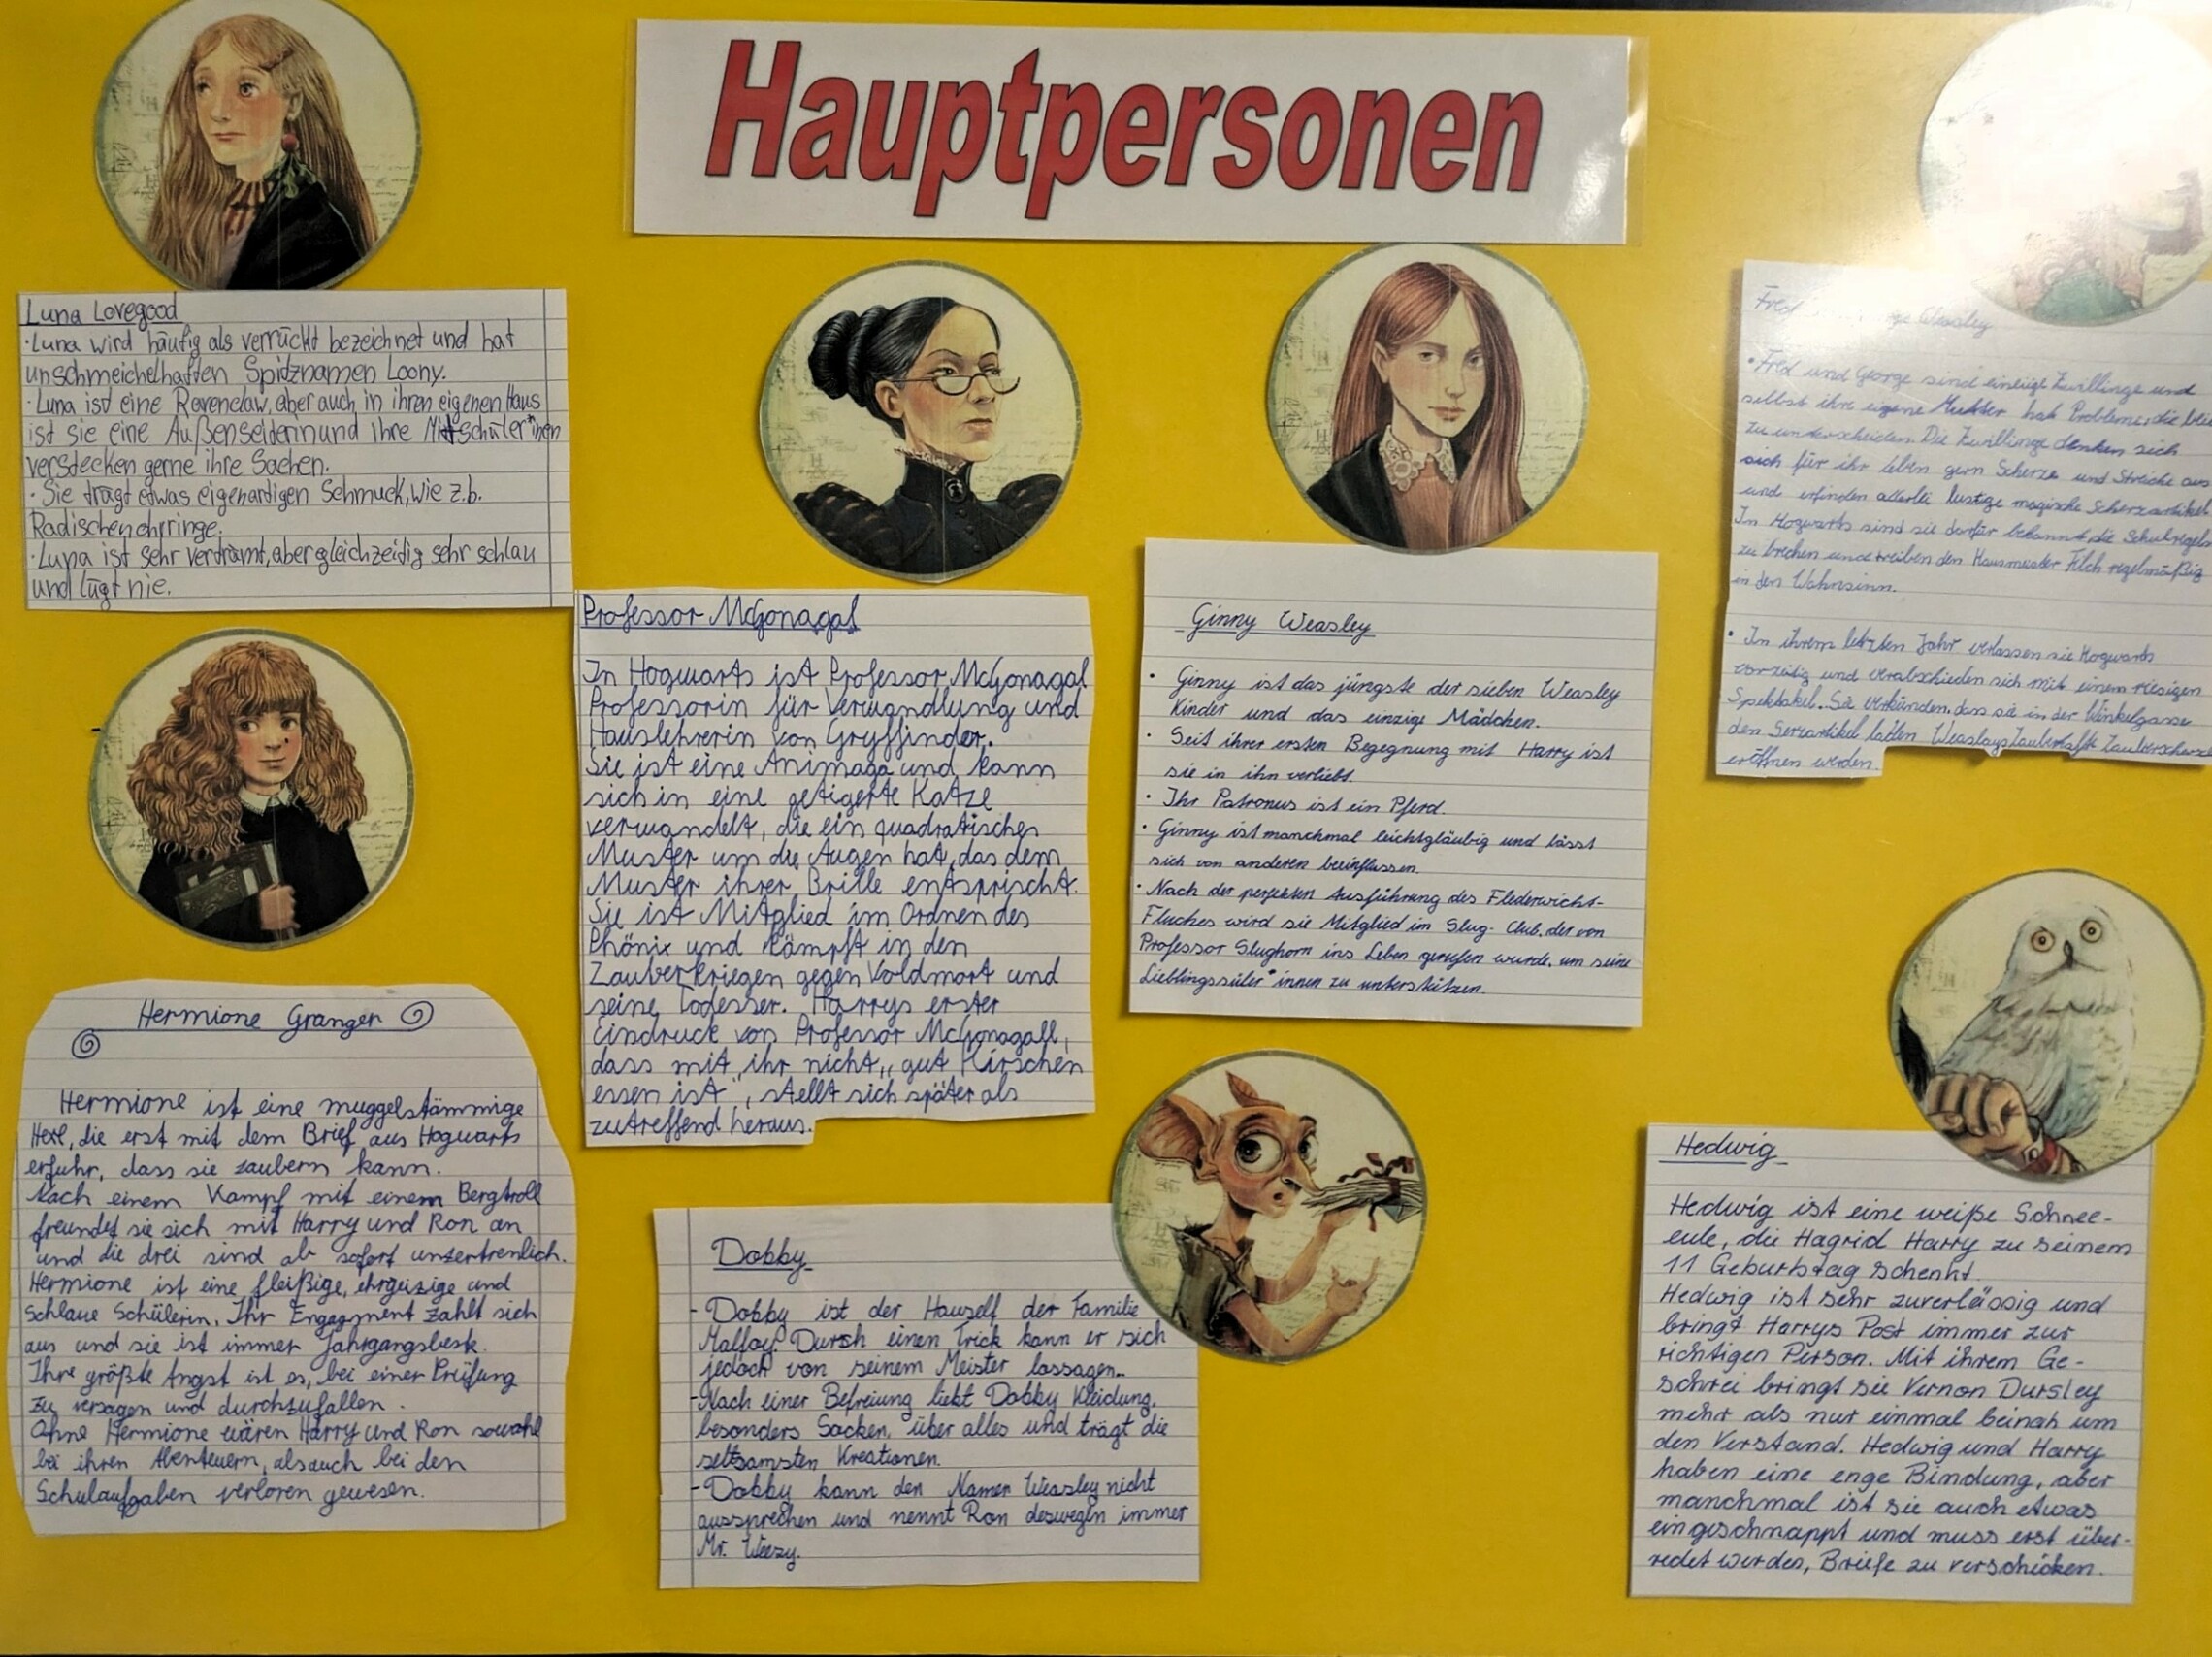 Hauptpersonen
Luna Lovegood
·Luna wird häufig als verrückt bezeichnet und hat
unschmeichelhaften Spidznamen Loony.
·Luna ist eine Ravenclaw, aber auch in ihren eigenen Haus
ist sie eine Außenseiderin und ihre Mitschüler*inen
verstecken gerne ihre Sachen.
·Sie trägt etwas eigenartigen Schmuck, wie z.b.
Radischenohrringe.
·Luna ist sehr verträmt, aber gleichzeitig sehr schlau
und lügt nie.
Hermione Granger
Hermione ist eine muggelstämmige
Hexe, die erst mit dem Brief aus Hogwarts
erfuhr, dass sie zaubern kann.
Nach einem Kampf mit einem Bergtroll
freundet sie sich mit Harry und Ron an
und die drei sind ab sofort unzertrenlich.
Hermione ist eine fleißige, ehrgeizige und
Schlaue Schülerin. Ihr Engagment zahlt sich
aus und sie ist immer Jahrgangsbeste.
Ihre größte Angst ist es, bei einer Prüfung
zu versagen und durchzufallen.
Ohne Hermione wären Harry und Ron sowohl
bei ihren Abenteuern, als auch bei den
Schulaufgaben verloren gewesen.
Professor McGonagal
In Hogwarts ist Professor McGonagal
Professorin für Verwandlung und
Hauslehrerin von Gryffindor.
Sie ist eine Animaga und kann
sich in eine getigerte Katze
verwandelt, die ein quadratisches
Muster um die Augen hat, das dem
Muster ihrer Brille entsprischt.
Sie ist Mitglied im Ordnen des
Phönix und kämpft in den
Zauberkriegen gegen Voldmort und
seine Todesser. Harrys erster
Eindruck von Professor McGonagall,
dass mit ihr nicht „gut Kirschen
essen ist", stellt sich später als
zutreffend heraus.
Ginny Weasley
• Ginny ist das jüngste der sieben Weasley
Kinder und das einzige Mädchen.
• Seit ihrer ersten Begegnung mit Harry ist
sie in ihn verliebt.
• Ihr Patronus ist ein Pferd.
• Ginny ist manchmal leichtgläubig und lässt
sich von anderen beeinflussen.
• Nach der perfekten Ausführung des Flederwicht-
Fluches wird sie Mitglied im Slug-Club, der von
Professor Slughorn ins Leben gerufen wurde, um seine
Lieblingssüler*innen zu unterstützen.
Dobby
- Dobby ist der Hauself der Familie
Malfoy. Durch einen Trick kann er sich
jedoch von seinem Meister lossagen.
- Nach einer Befreiung liebt Dobby Kleidung,
besonders Socken, über alles und trägt die
seltsamsten Kreationen.
- Dobby kann den Namen Weasley nicht
aussprechen und nennt Ron deswegen immer
Mr. Weezy.
Fred Weasley
• Fred und George sind eineiige Zwillinge und
selbst ihre eigene Mutter hat Probleme, die
zu unterscheiden. Die Zwillinge denken sich
sich für ihr leben gern Scherze und Streiche aus
und erfinden allerlei lustige magische Scherzartikel.
In Hogwarts sind sie dafür bekannt, die Schulregeln
zu brechen und treiben den Hausmeister Filch regelmäßig
in den Wahnsinn.
• In ihrem letzten Jahr verlassen sie Hogwarts
vorzeitig und verabschieden sich mit einem riesigen
Spektakel. Sie verkünden, dass sie in der Winkelgasse
den Serzartikel laden Zauberhafte
eröffnen werden.
Hedwig
Hedwig ist eine weiße Schnee-
eule, die Hagrid Harry zu seinem
11 Geburtstag schenkt.
Hedwig ist sehr zuverlässig und
bringt Harrys Post immer zur
richtigen Person. Mit ihrem Ge-
schrei bringt sie Vernon Dursley
mehr als nur einmal beinah um
den Verstand. Hedwig und Harry
haben eine enge Bindung, aber
manchmal ist sie auch etwas
eingeschnappt und muss erst über-
redet werden, Briefe zu verschicken.